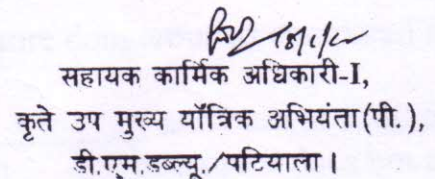 सहायक कार्मिक अधिकारी-I,
कृते उप मुख्य यॉंत्रिक अभियंता(पी.),
डी.एम.डब्ल्यू./पटियाला।